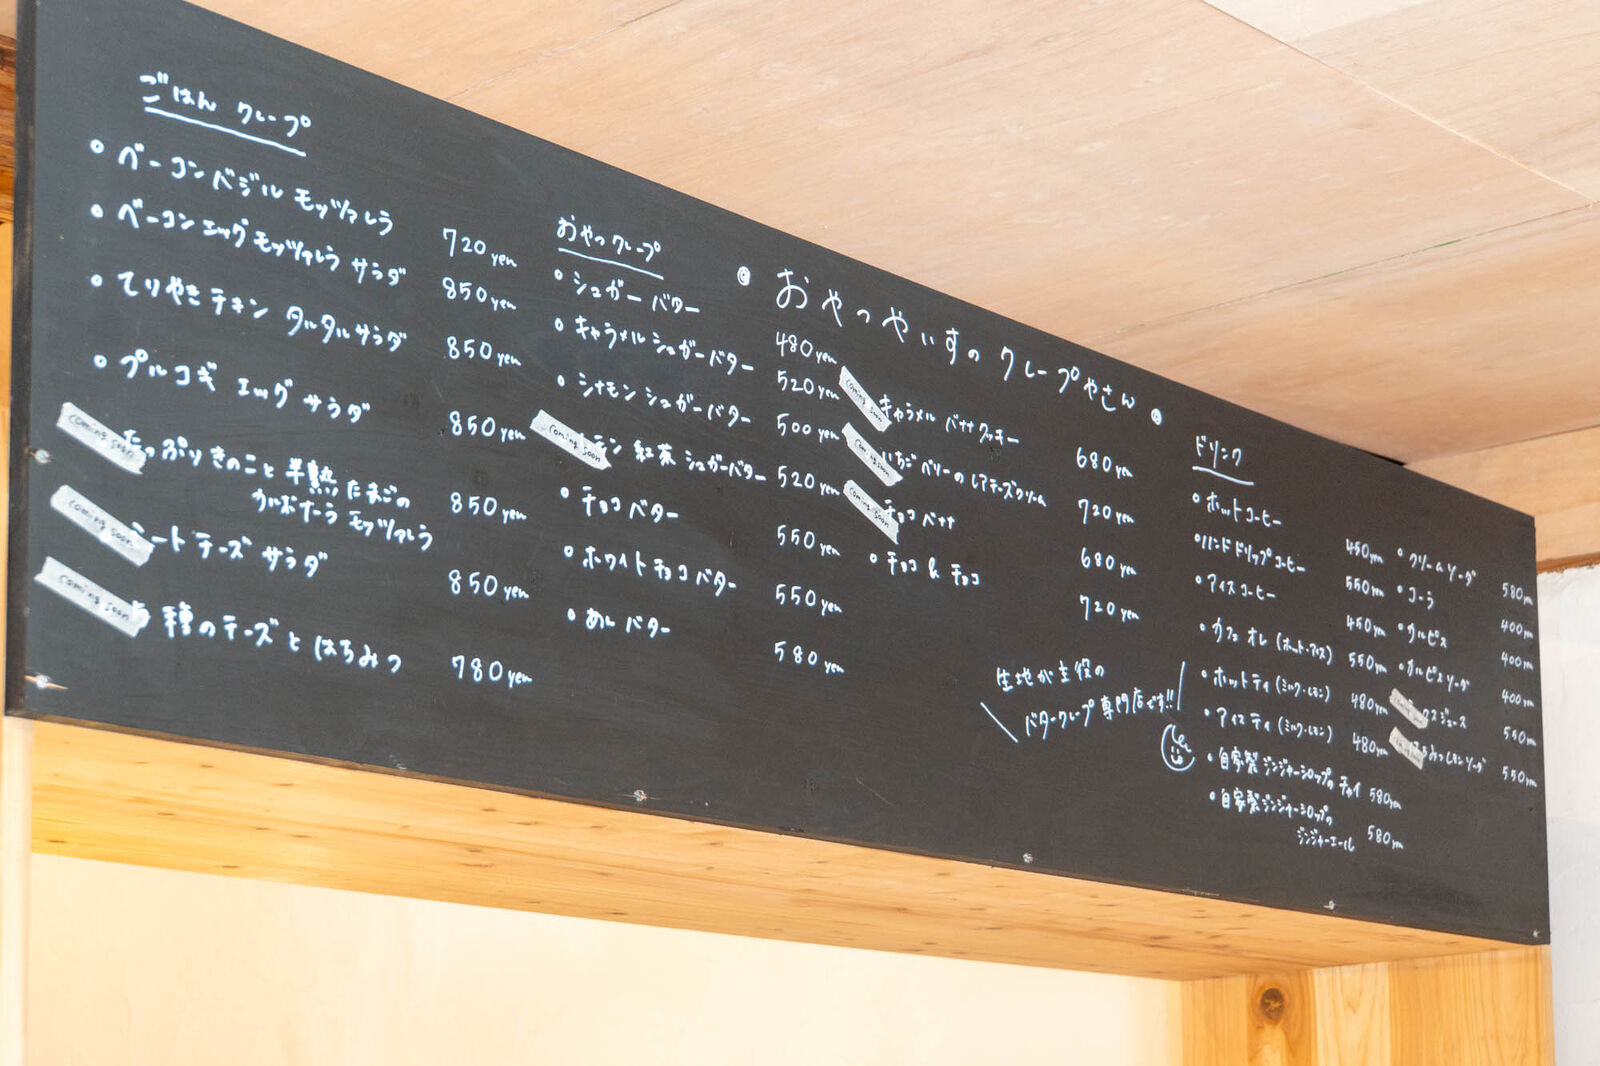 ごはん クレープ
ベーコン バジル モッツァレラ 720yen
ベーコン エッグ モッツァレラ サラダ 850yen
てりやき チキン タルタル サラダ 850yen
プルコギ エッグ サラダ 850yen
coming soon たっぷり きのこと 半熟 たまごの
カルボナーラ モッツァレラ 850yen
coming soon ート チーズ サラダ 850yen
coming soon 種の チーズ と はちみつ 780yen
おやつ クレープ
シュガー バター 480yen
キャラメル シュガー バター 520yen
シナモン シュガー バター 500yen
coming soon 紅茶 シュガーバター 520yen
チョコ バター 550yen
ホワイト チョコ バター 550yen
あん バター 580yen
おやつやいすの クレープやさん
coming soon キャラメル バナナ クッキー 680yen
coming soon いちご ベリーの レアチーズクリーム 720yen
coming soon チョコ バナナ 680yen
チョコ & チョコ 720yen
生地が主役の
バタークレープ 専門店です!!
ドリンク
ホットコーヒー 450yen
ハンドドリップコーヒー 550yen
アイスコーヒー 450yen
カフェオレ (ホット・アイス) 550yen
ホットティ (ミルク・レモン) 480yen
アイスティ (ミルク・レモン) 480yen
自家製ジンジャーシロップの チャイ 580yen
自家製ジンジャーシロップの
ジンジャーエール 580yen
クリームソーダ 580yen
コーラ 400yen
カルピス 400yen
カルピスソーダ 400yen
クスジュース 550yen
ちみつレモンソーダ 550yen